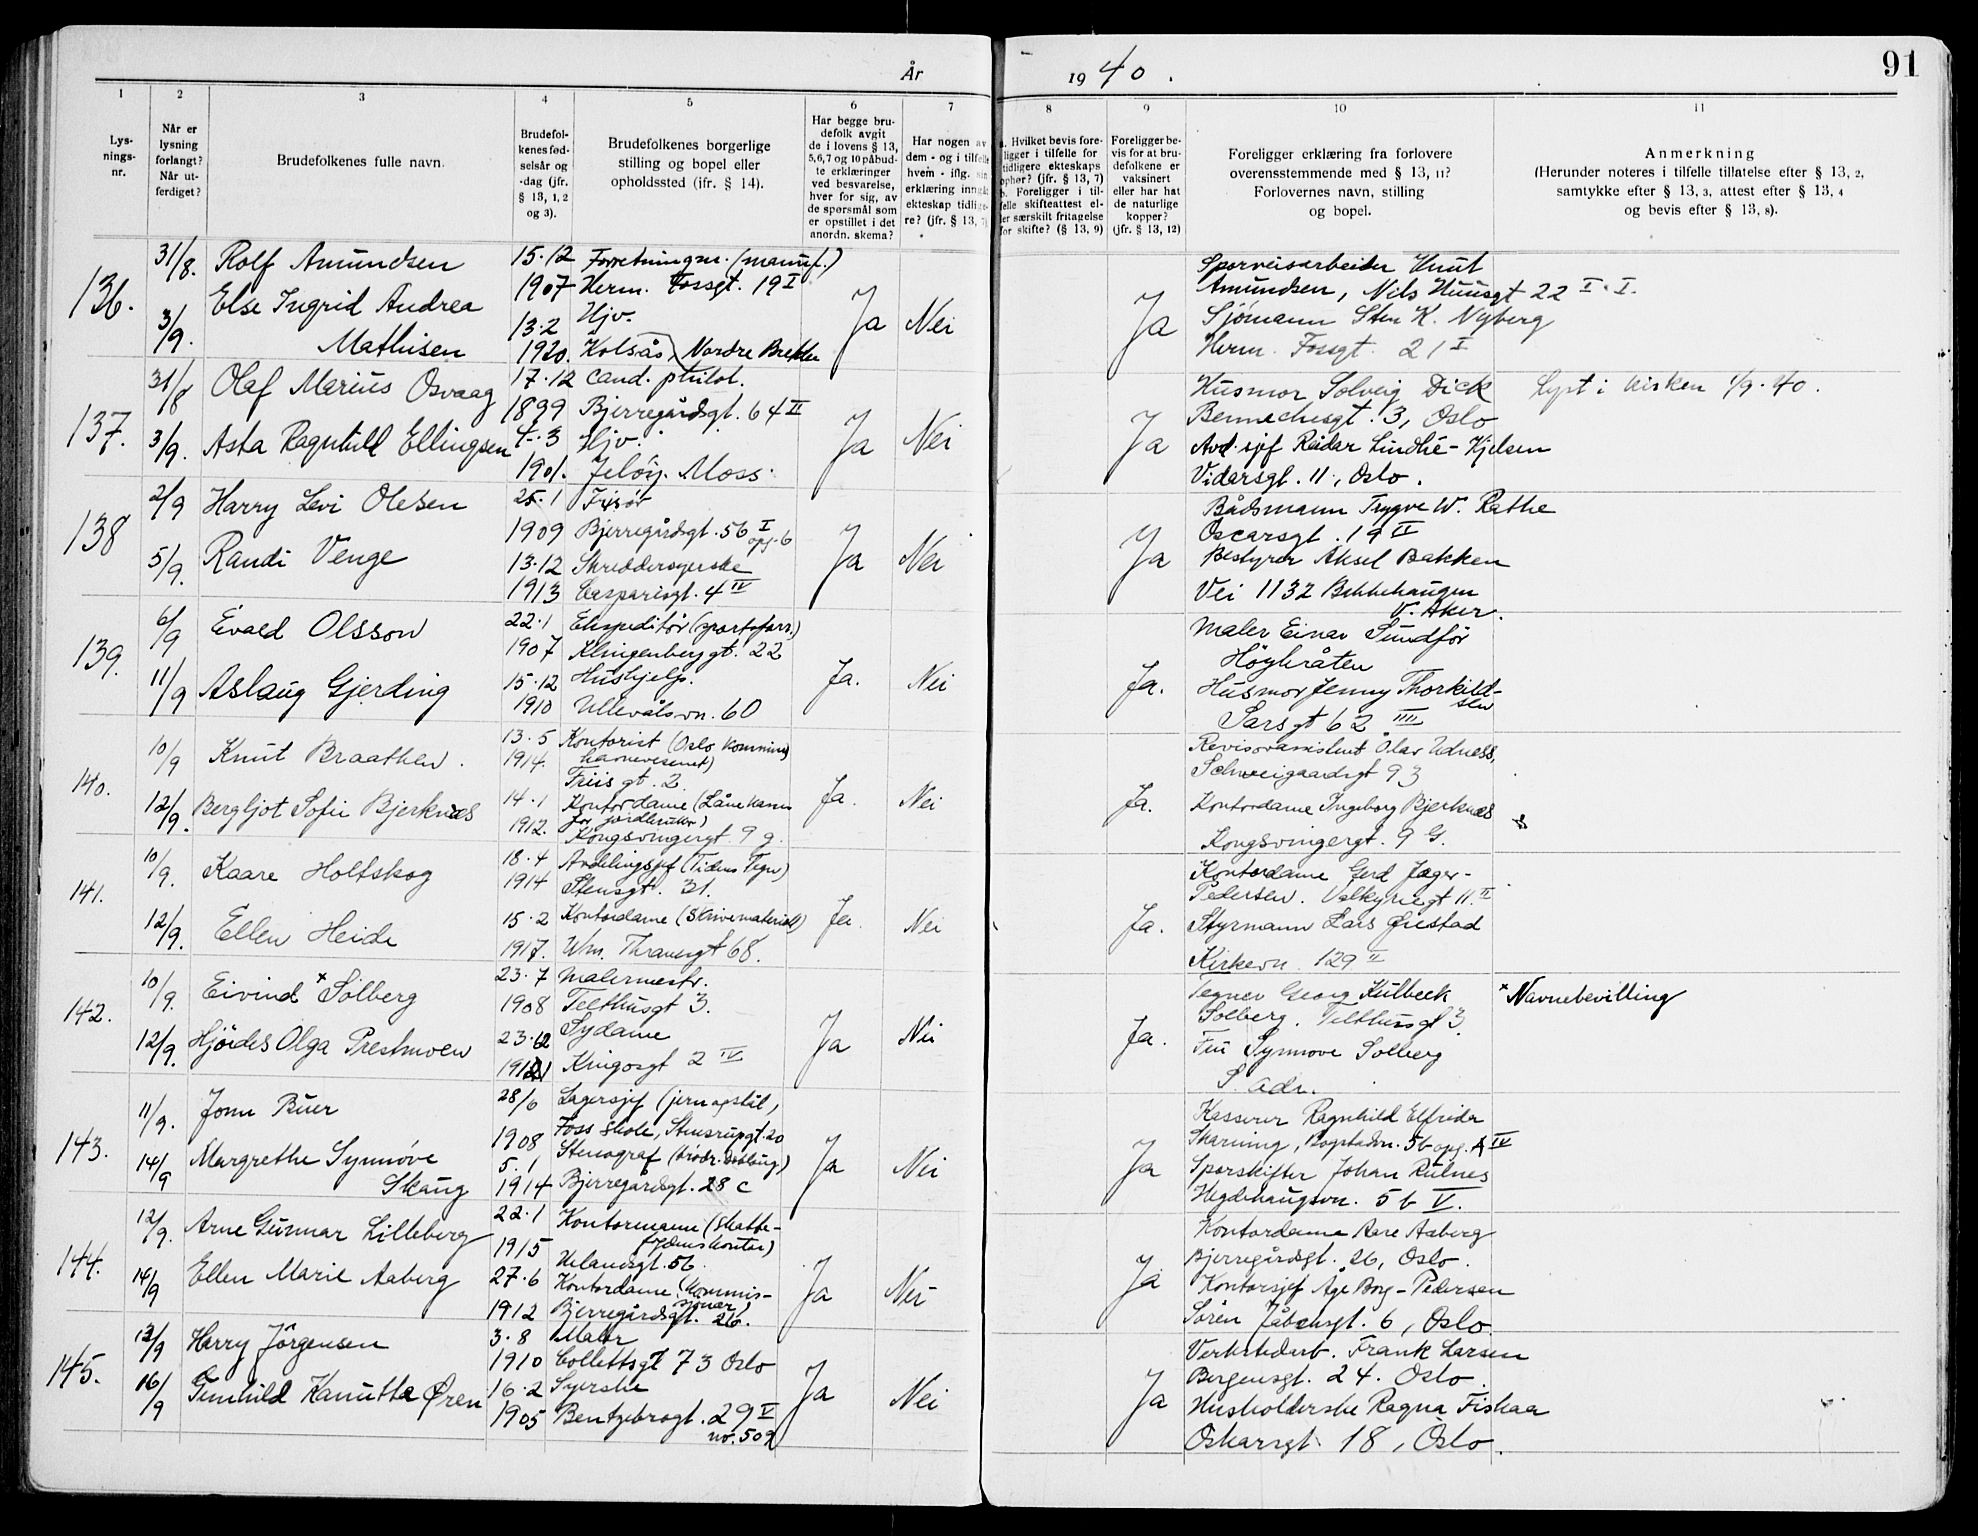 År 1940.
91
1 2 3 4 5 6 7 8 9 10 11
Lysnings-nr.
Når er lysning forlangt? Når utferdiget?
Brudefolkenes fulle navn.
Brudefolkenes fødselsår og -dag (jfr. § 13, 1, 2 og 3).
Brudefolkenes borgerlige stilling og bopel eller opholdssted (jfr. § 14).
Har begge brudefolk avgit de i lovens § 13, 5,6,7 og 10 påbudte erklæringer ved besvarelse, hver for sig, av de spørsmål som er opstillet i det anordn. skema?
Har nogen av dem - og i tilfelle hvem - iflg. sin erklæring inngått ekteskap tidligere? (jfr. § 13, 7)
a. Hvilket bevis foreligger i tilfelle for tidligere ekteskaps ophør? (jfr. § 13, 7)
b. Foreligger i tilfelle skifteattest eller særskilt fritagelse for skifte? (§ 13, 9)
Foreligger bevis for at brudefolkene er vaksinert eller har hat de naturlige kopper? (jfr. § 13, 12)
Foreligger erklæring fra forlovere overensstemmende med § 13, 11? Forlovernes navn, stilling og bopel.
Anmerkning
(Herunder noteres i tilfelle tillatelse efter § 13, 2,
samtykke efter § 13, 3, attest efter § 13, 4
og bevis efter § 13, 8).
136.
31/8.
3/9.
Rolf Amundsen
Else Ingrid Andrea
Mathisen
15.12
1907
13.2
1920.
Forretningsm. (manuf.)
Herm. Fossgt. 19 I
Hjv.
Kolsås, Nordre Brekke
Ja
Nei
Ja
Sporveisarbeider Knut
Amundsen, Nils Huusgt 22 I. I.
Sjömann Sten K. Nyberg
Herm. Fossgt. 21 I
137.
31/8
3/9.
Olaf Marius Osvaag
Asta Ragnhild Ellingsen
17.12
1899
4.3
1901.
Cand. philol.
Bjerregårdsgt. 64 II
Hjv.
Jelöy. Moss.
Ja
Nei
Ja
Husmor Solveig Dick
Bennechesgt. 3, Oslo
Avd. sjef Reidar Lindhé-Kjelsen
Vidarsgt. 11, Oslo.
Lyst i kirken 1/9.40.
138
2/9
5/9.
Harry Levi Olesen
Randi Venge
25.1
1909
13.12
1913
Frisör
Bjerregårdsgt. 56 I
opg. 6
Skreddersyerske
Casparisgt. 4 IV
Ja
Nei
Ja
Bådsmann Trygve W. Rathe
Oscarsgt. 19 II
Bestyrer Aksel Bakken
Vei 1132 Bekkehaugen
V. Aker.
139.
6/9
11/9
Evald Olsson
Aslaug Gjerding
22.1
1907
15.12
1910
Ekspeditör (sportsforr.)
Klingenberggt. 22
Hushjelp.
Ullevålsvn. 60
Ja.
Nei
Ja.
Maler Einar Sundför
Höybråten
Husmor Jenny Thorkild-
sen
Sarsgt 62 IIII
140.
10/9
12/9.
Knut Braathen.
Bergljot Sofie Bjerknæs
13.5
1914.
14.1
1912.
Kontorist (Oslo kommun.
havnevesenet)
Friisgt. 2.
Kontordame (Lånekassen
for jordbruker)
Kongsvingergt 9 g.
Ja.
Nei
Ja.
Revisorassistent Olav Udness,
Schweigaardsgt 93
Kontordame Ingeborg Bjerknæs
Kongsvingergt. 9 G.
141.
10/9.
12/9.
Kaare Holtskog
Ellen Heide
18.4
1914
15.2
1917.
Avdelingssjef (Tidens Tegn)
Stensgt. 31.
Kontordame (Skrivemateriell)
Wm. Thranesgt 68.
Ja.
Nei
Ja.
Kontordame Gerd Jæger-
Pedersen. Valkyriegt 11. II
Styrmann Lars Øiestad
Kirkevn. 129 II
142.
10/9.
12/9.
Eivind x Solberg
Hjördis Olga Prestmoen
23.7
1908
23.
Malermestr.
Telthusgt 3.
Sydame
Kingosgt 2 IV
Ja
Nei
Ja.
Tegner Georg Kulbeck
Solberg. Telthusgt 3.
Fru Synnove Solberg
S. adr.
x Navnebevilling
143.
11/9.
14/9
John Buer
Margrethe Synnöve
Skaug
28/6
1908
5.1
1914
Lagersjef (jern og stål,
Foss skole, Stensrupgt. 20
Stenograf
Bjerregårdsgt. 28 c
Ja
Nei
Ja
Kasserer Ragnhild Elfrida
Skarning, Bogstadvn. 56 opg. A IV
Sporskifter Johan Rulnes
Hegdehaugsvn. 5 b V.
144.
12/9.
14/9
Arne Gunnar Lilleberg
Ellen Marie Aaberg
22.1
1915
27.6
1912
Kontormann (skatte-
fogdens kontor)
Uelandsgt. 56.
Kontordame (Kommis-
sjonær)
Bjerregårdsgt. 26.
Ja
Nei
Ja
Kontordame Aase Aaberg
Bjerregårdsgt. 26, Oslo.
Kontorsjef Åge Borg-Pedersen
Sören Jåbæksgt. 6, Oslo.
145.
13/9
16/9
Harry Jörgensen
Gunhild Kanutta Øren
3.8
1910
16.2
1905
Maler
Collettsgt 73 Oslo
Syerske
Bentzebrogt. 29 V
no. 509
Ja
Nei
Ja
Verkstedarb. Frank Larsen
Bergensgt. 24. Oslo.
Husholderske Ragna Fiskaa
Oskarsgt 18, Oslo.